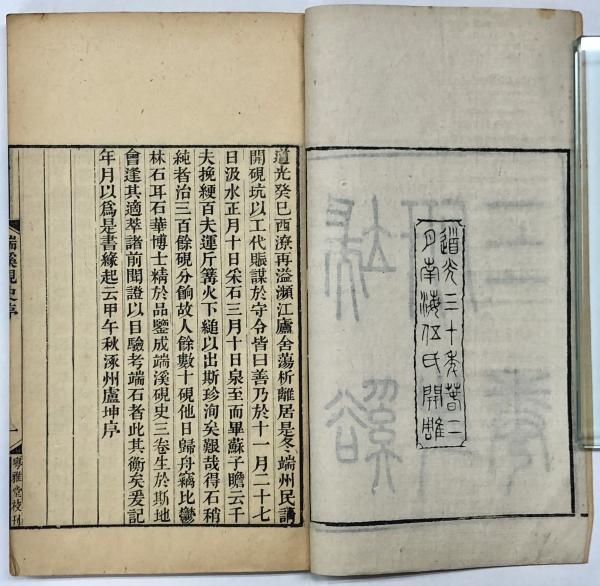 道光三十秊萅二
月南海伍氏開雕
道光癸巳西潦再溢瀕江廬舍蕩析離居是冬端州民請
開硯坑以工代賑謀於守令皆曰善乃於十一月二十七
日汲水正月十日采石三月十日泉至而畢蘇子瞻云千
夫挽綆百夫運斤篝火下縋以出斯珍洵矣艱哉得石稍
純者治三百餘硯分餉故人餘數十硯他日歸舟竊比鬱
林石耳石華博士精於品鑒成端溪硯史三卷生於斯地
會逢其適萃諸前聞證以目驗考端石者此其衡矣爰記
年月以爲是書緣起云甲午秋涿州盧坤序
端溪硯史序
一
粵雅堂校刊